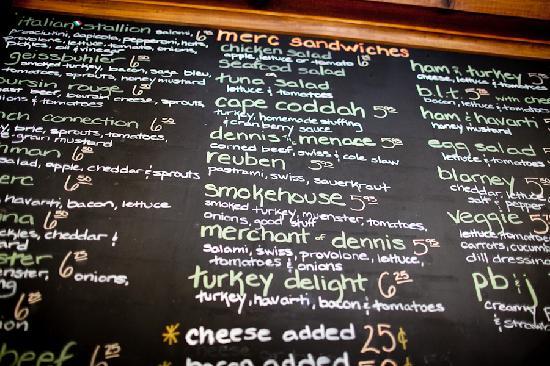 italian stallion
prosciutti, capicola, pepperoni, hots,
pickles, oil & vinegar
geissbuhler
smoked turkey, bacon,
tomatoes, sprouts, honey mustard
boursin rouge 6
boursin cheese, sprouts,
connection 6
brie, sprouts, tomatoes,
grain mustard
salad, apple, cheddar & sprouts
6
havarti, bacon, lettuce
6
cheddar &
6
onions,
6
beef 6
merc sandwiches
chicken salad
apple, lettuce or tomato
seafood salad
tuna salad
lettuce & tomatoes
cape coddah 5
turkey, homemade stuffing
& cranberry sauce
dennis menace 5
corned beef, swiss & cole slaw
reuben 5
pastrami, swiss, sauerkraut
smokehouse 5
smoked turkey, muenster, tomatoes,
onions, good stuff
merchant of dennis 5
salami, swiss, provolone, lettuce,
tomatoes & onions
turkey delight 6 25
turkey, havarti, bacon & tomatoes
* cheese added 25¢
* bacon added 50¢
ham & turkey 5
cheese, lettuce &
b.l.t. 5 with
bacon, lettuce &
ham & havarti
honey mustard
egg salad
lettuce & tomatoes
blarney
cheddar, lettuce
salt & pepper
veggie 5
lettuce, tomatoes,
carrots,
dill dressing
pb & j
creamy
&